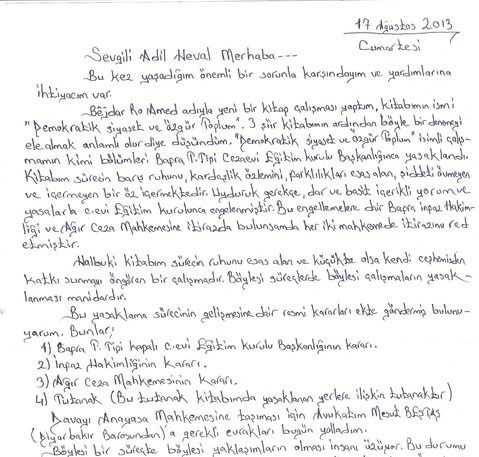 17 Ağustos 2013
Cumartesi
Sevgili Adil Heval Merhaba ---
Bu kez yaşadığım önemli bir sorunla karşındayım ve yardımlarına
ihtiyacım var.
Bêjdar Ro Amed adıyla yeni bir kitap çalışması yaptım, kitabımın ismi
"Demokratik siyaset ve Özgür Toplum". 3 şiir kitabımın ardından böyle bir denemeyi
ele almak anlamlı olur diye düşündüm. "Demokratik siyaset ve Özgür Toplum" isimli çalış-
mamın kimi bölümleri Bafra T. Tipi Cezaevi Eğitim kurulu Başkanlığınca yasaklandı.
Kitabım sürecin barış ruhunu, kardeşlik özlemini, farklılıkları esas alan, şiddeti övmeyen
ve içermeyen bir öz içermektedir. Uyduruk gerekçe, dar ve basit içerikli yorum ve
yasalarla c.evi Eğitim kurulunca engellenmiştir. Bu engellemelere dair Bafra infaz Hakim-
liği ve Ağır Ceza Mahkemesine itirazda bulunsamda her iki mahkemede itirazımı red
etmiştir.
Halbuki kitabım sürecin ruhunu esas alan ve küçükte olsa kendi cephemden
katkı sunmayı öngören bir çalışmadır. Böylesi süreçlerde böylesi çalışmaların yasak-
lanması manidardır.
Bu yasaklama sürecinin gelişmesine dair resmi kararları ekte göndermiş bulunu-
yorum. Bunlar;
1) Bafra T. Tipi kapalı c.evi Eğitim kurulu Başkanlığının kararı.
2) İnfaz Hakimliğinin Kararı.
3) Ağır Ceza Mahkemesinin Kararı.
4) Tutanak (Bu tutanak kitabımda yasaklanan yerlere ilişkin tutanaktır)
Davayı Anayasa Mahkemesine taşıması için Avukatım Mesut BEŞTAŞ
(Diyarbakır Barosundan)'a gerekli evrakları bugün yolladım.
Böylesi bir süreçte böylesi yaklaşımların olması insanı üzüyor. Bu durumu